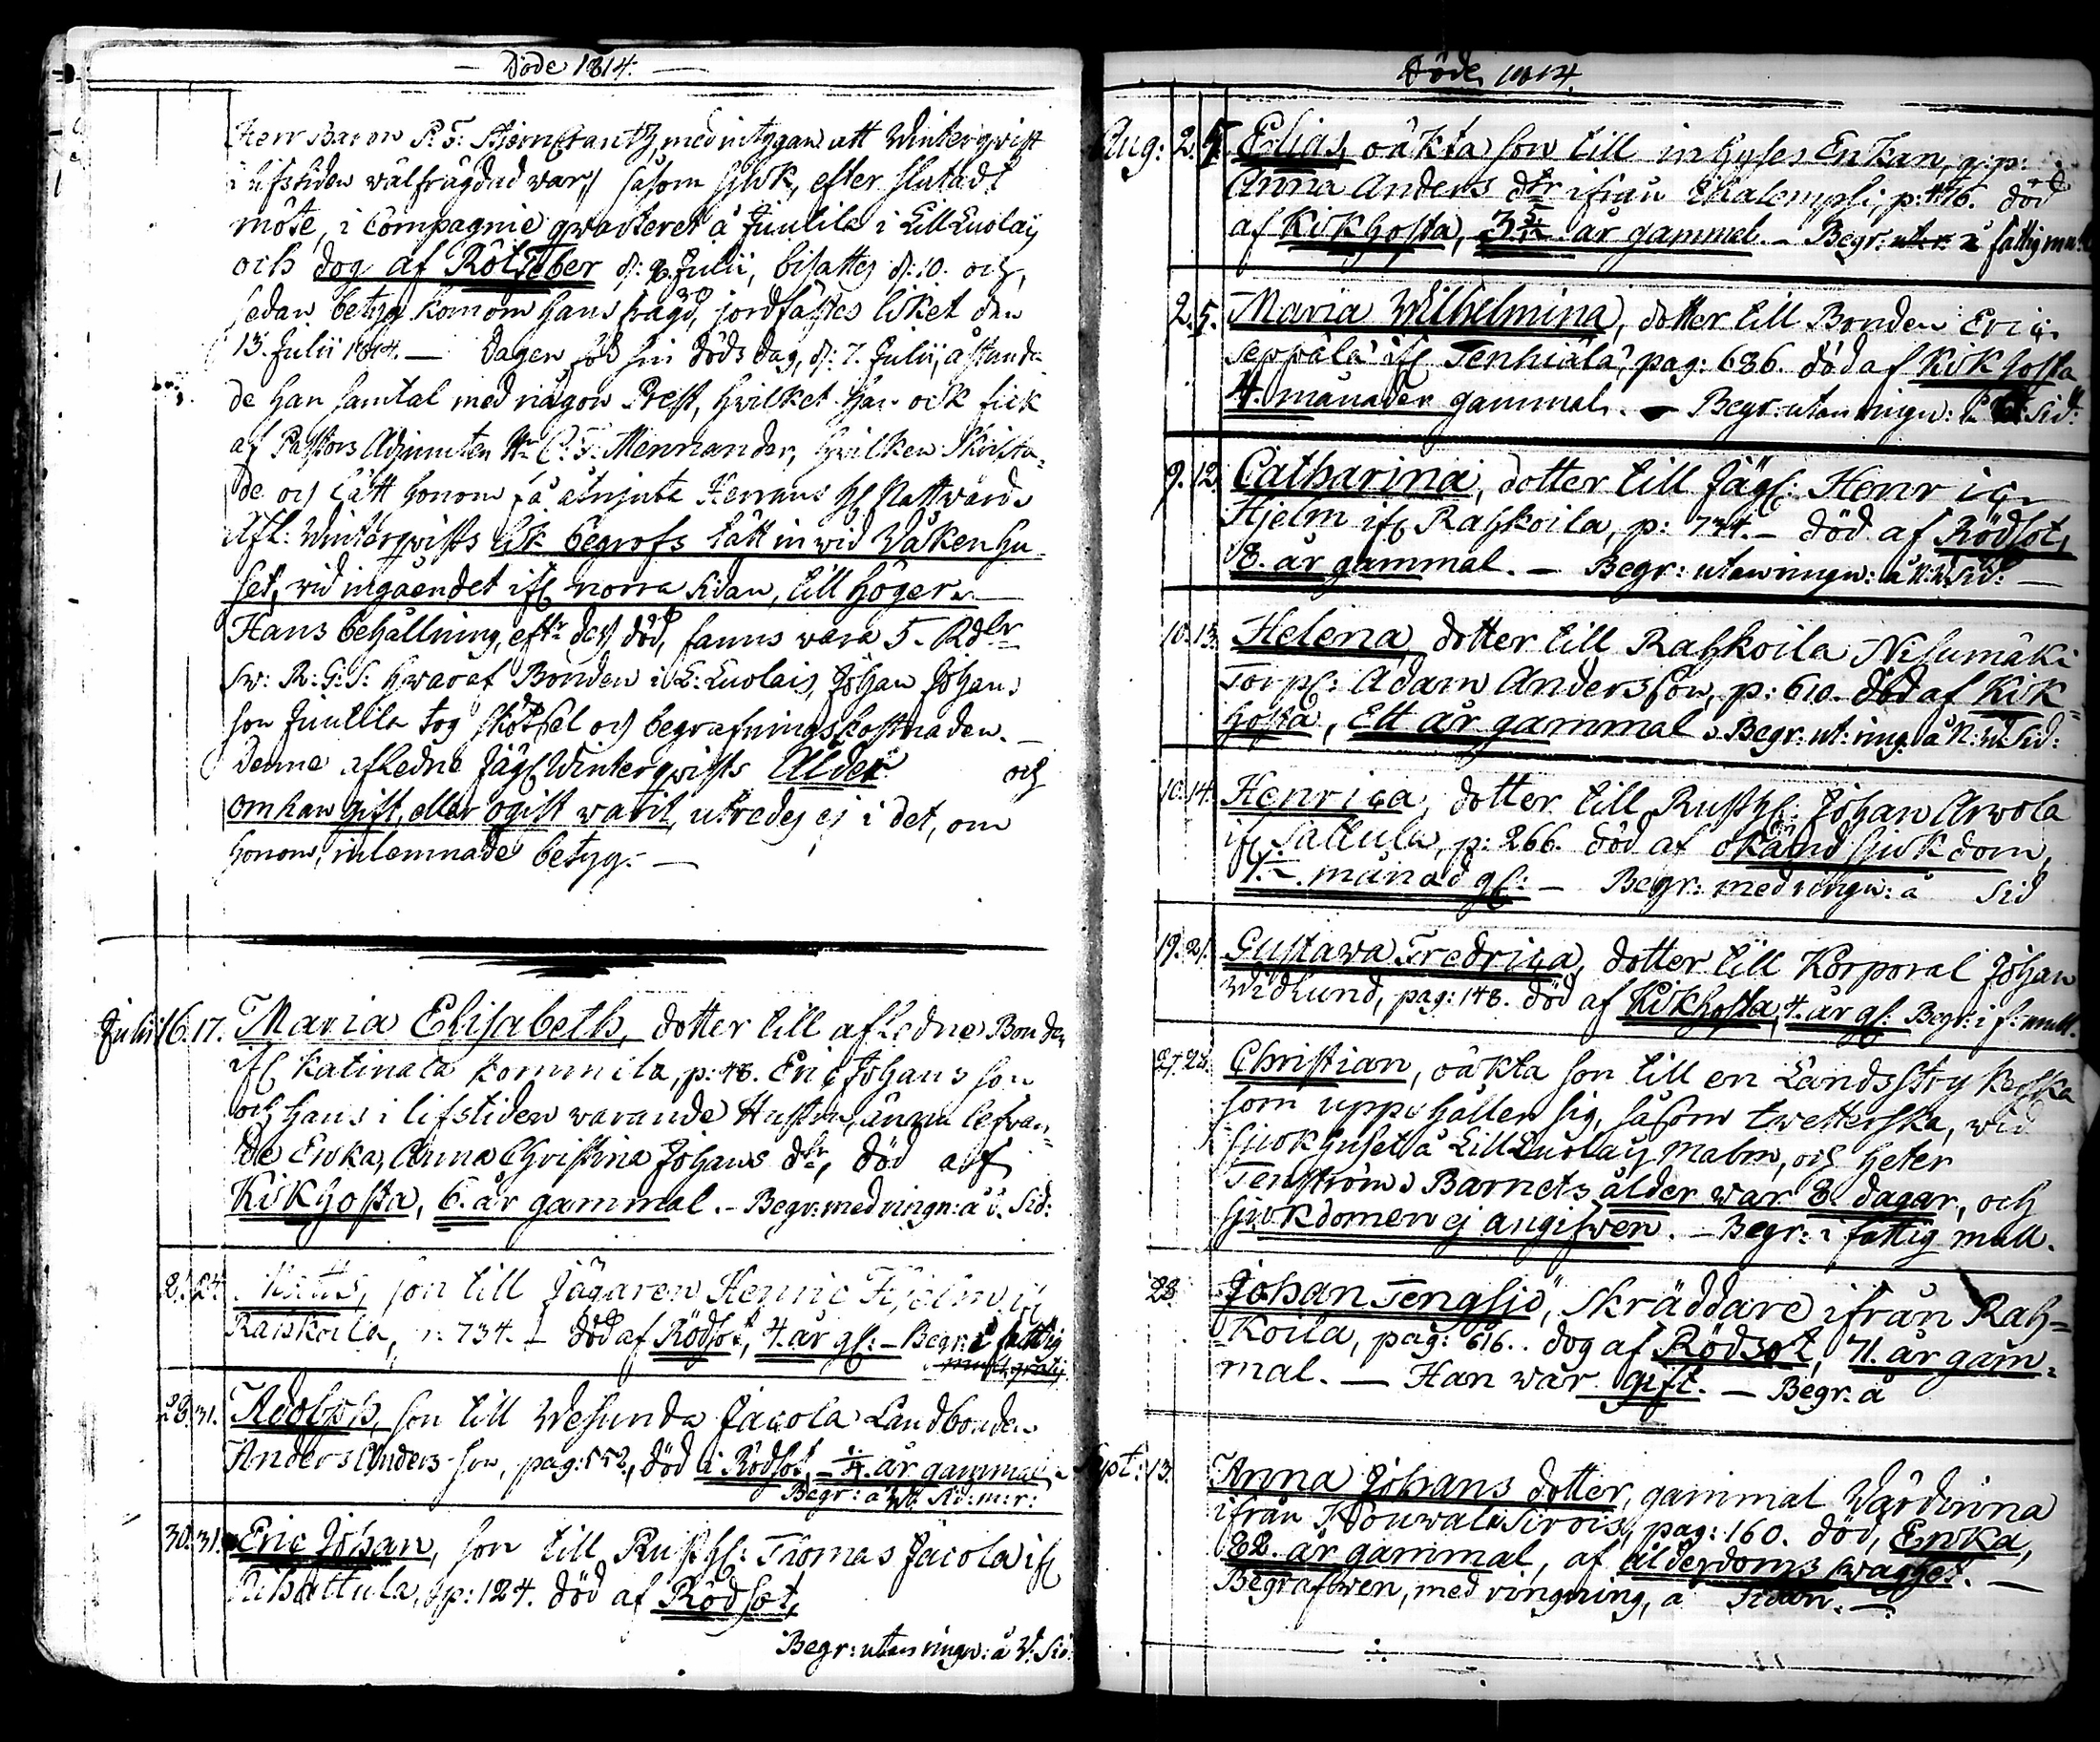 Döde 1814.
Herr Baron med intygan att Winterqvist
i lifstiden wälfrägdad war, såsom sjuk, efter slutadt
möte, i Compagnie qwarteret å Juutila i Lill Luolais
och dog af Rötfeber d: 8. Julii, bisattes d: 10. och,
sedan betyg kom om hans frägd, jordfästes liket den
13. Julii 1814. — Dagen för sin döds dag, d: 7. Julii, åstunda-
de han samtal med någon Prest, hvilket han ock fick
af Pastors Adjuncten Hr C. F. Mennander, hvilken skrifta-
de och lätt honom få åtnjuta Herrans H. Nattward.
Afl: Winterqvists lik begrofs tätt in wid Wåkenhu-
set, wid ingåendet ifr norra sidan, till höger. —
Hans behållning, eftr dess död, fanns wara 5. Rdlr
Sw: R: G: S: hwaraf Bonden i L: Luolais, Johan Johans
son Juutila tog skötsel och begrafningskostnaden. —
Denne afledne Jäg: Winterqvists Ålder och
om han gift, eller ogift warit, utredes ej i det, om
honom, inlemnade betyg. —
Julii 16. 17. Maria Elisabeth, dotter till afledne Bonden
ifr Katinala Kommila, p: 48. Eric Johans son
och hans i lifstiden warande Hustru, ännu lefwan-
de Enka, Anna Christina Johans dtr, död af
Kikhosta, 6. år gammal. — Begr: med ringn: å Sid:
21. 24. Matts, son till Jägaren Henric Hjelm if
Rahkoila, p: 734. — död af Rödsot, 4. år gl: — Begr: i fattig
28. 31. Adolph, son till Wesunda Jacola Landbonden
Anders Anders son, pag: 552, död i Rödsot, år gammal.
Begr: å Sid: m: r:
30. 31. Eric Johan, son till Rusth: Thomas Jacola if
Rihattula, p: 124. död af Rödsot,
Begr: utan ringn: å W. Sid:
Döde 1814.
Aug: 2. 4. Elias, oäkta son till inhyses Enkan, q: p:
Anna Anders dtr ifrån p: 476. död
af Kikhosta, år gammal. — Begr: å fattig mu
2. 5. Maria Wilhelmina, dotter till Bonden Eric
Seppälä if Tenhiälä, pag: 686. död af Kikhosta
4. månader gammal. — Begr: utan ringn: Sid:
9. 12. Catharina, dotter till Jäg: Henric
Hjelm if Rahkoila, p: 734. — död af Rödsot,
8. år gammal. — Begr: utan ringn: å Sid: —
10. 13. Helena, dotter till Rahkoila Nisumäki
Torp: Adam Anders son, p: 610. död af Kik-
hosta, Ett år gammal. Begr: ut: ring: å N: Sid:
10. 14. Henrica, dotter till Rusth: Johan Arwola
if Sattula, p: 266. död af okänd sjukdom,
månad gl: — Begr: med ringn: å Sid
19. 21. Gustawa Fredrica, dotter till Korporal Johan
Widlund, pag: 148. död af Kikhosta, 4. år gl: Begr: i f: mull.
27. 28. Christian, oäkta son till en Landsstrykerska
som uppehåller sig, såsom twetterska, wid
sjukhuset å Lill Luolais Malm, och heter
Tenström. Barnets ålder war 8. dagar, och
sjukdomen ej angifwen. — Begr: i fattig mull.
28. Johan Tengsjö, skräddare ifrån Rah-
koila, pag: 616. dog af Rödsot, 71. år gam-
mal. — Han war gift. — Begr. å
Sept: 13. Anna Johans dotter, gammal Wärdinna
ifrån pag: 160. död, Enka,
82. år gammal, af ålderdoms swaghet. —
Begrafwen, med ringning, å Sidan. —